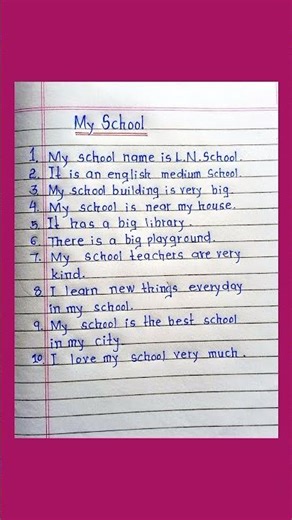 My School
1. My school name is L.N.School.
2. It is an english medium School.
3. My school building is very big.
4. My school is near my house.
5. It has a big library.
6. There is a big playground.
7. My school teachers are very
kind.
8. I learn new things everyday
in my school.
9. My school is the best school
in my city.
10. I love my school very much.